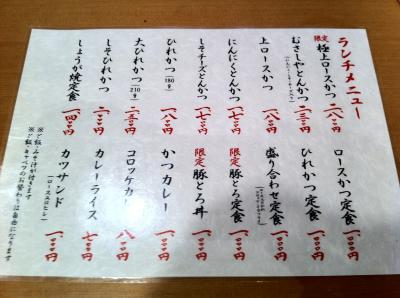 ランチメニュー
限定 極上ロースかつ 二、八〇〇円
むさしやとんかつ 一、七五〇円
上ロースかつ 一、八〇〇円
にんにくとんかつ 一、七五〇円
しそチーズとんかつ 一、七五〇円
ひれかつ(180g) 一、八〇〇円
大ひれかつ(210g)
しそひれかつ
しょうが焼定食 一、四〇〇円
ロースかつ定食 一、〇〇〇円
ひれかつ定食 一、〇〇〇円
盛り合わせ定食 一、〇〇〇円
限定 豚とろ定食 一、〇〇〇円
限定 豚とろ丼 一、〇〇〇円
かつカレー 一、〇〇〇円
コロッケカレー 八〇〇円
カレーライス 七〇〇円
カツサンド 一、〇〇〇円
(ロース又はヒレ)
※ご飯・みそ汁が付きます
※ご飯・キャベツのお替わりは自由になります